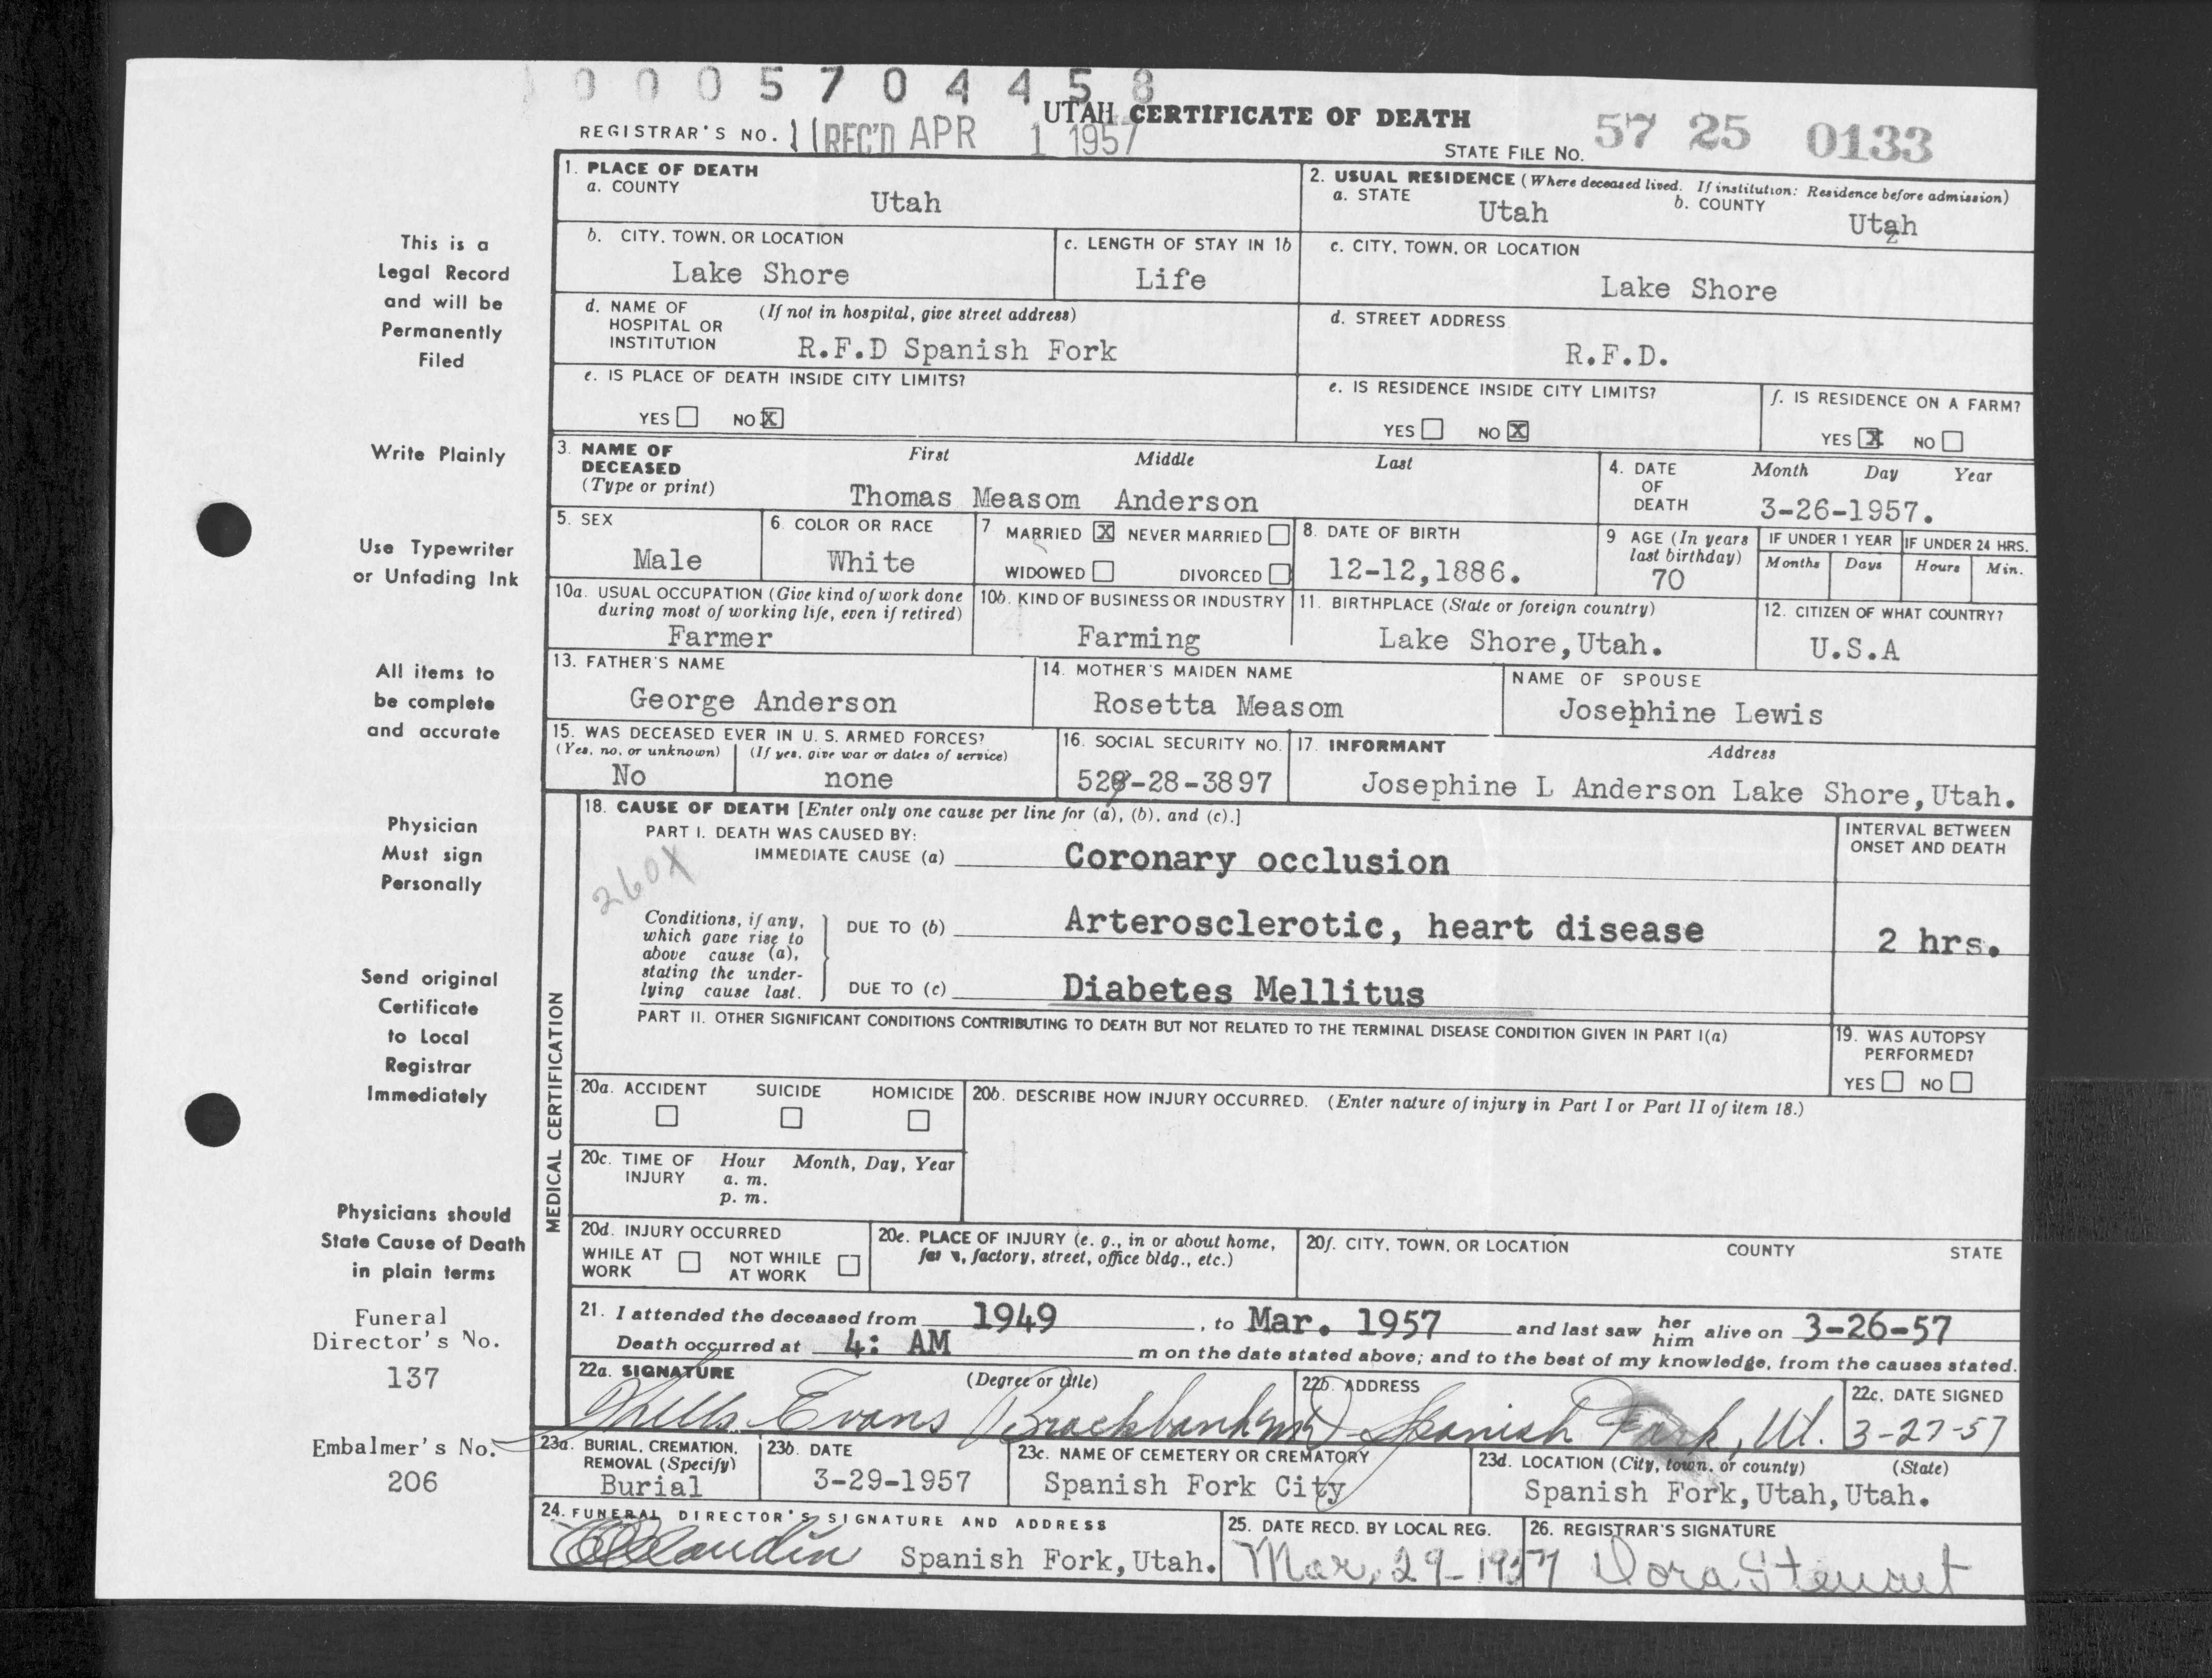 0 0 0 5 7 0 4 4 5 8
UTAH CERTIFICATE OF DEATH
REGISTRAR'S NO. 11 REC'D APR 1 1957
STATE FILE NO. 57 25 0133
This is a
Legal Record
and will be
Permanently
Filed
Write Plainly
Use Typewriter
or Unfading Ink
All items to
be complete
and accurate
Physician
Must sign
Personally
Send original
Certificate
to Local
Registrar
Immediately
Physicians should
State Cause of Death
in plain terms
Funeral
Director's No.
137
Embalmer's No.
206
1. PLACE OF DEATH
a. COUNTY
Utah
2. USUAL RESIDENCE (Where deceased lived. If institution: Residence before admission)
a. STATE Utah b. COUNTY Utah
2
b. CITY, TOWN, OR LOCATION
Lake Shore
c. LENGTH OF STAY IN 1b
Life
c. CITY, TOWN, OR LOCATION
Lake Shore
d. NAME OF HOSPITAL OR INSTITUTION (If not in hospital, give street address)
R.F.D Spanish Fork
d. STREET ADDRESS
R.F.D.
e. IS PLACE OF DEATH INSIDE CITY LIMITS?
YES NO X
e. IS RESIDENCE INSIDE CITY LIMITS?
YES NO X
f. IS RESIDENCE ON A FARM?
YES X NO
3. NAME OF DECEASED (Type or print)
First Middle Last
Thomas Measom Anderson
4. DATE OF DEATH
Month Day Year
3-26-1957.
5. SEX
Male
6. COLOR OR RACE
White
7 MARRIED X NEVER MARRIED
WIDOWED DIVORCED
8. DATE OF BIRTH
12-12,1886.
9 AGE (In years last birthday)
70
IF UNDER 1 YEAR
Months Days
IF UNDER 24 HRS.
Hours Min.
10a. USUAL OCCUPATION (Give kind of work done during most of working life, even if retired)
Farmer
10b. KIND OF BUSINESS OR INDUSTRY
Farming
11. BIRTHPLACE (State or foreign country)
Lake Shore,Utah.
12. CITIZEN OF WHAT COUNTRY?
U.S.A
13. FATHER'S NAME
George Anderson
14. MOTHER'S MAIDEN NAME
Rosetta Measom
NAME OF SPOUSE
Josephine Lewis
15. WAS DECEASED EVER IN U. S. ARMED FORCES?
(Yes, no, or unknown) (If yes, give war or dates of service)
No none
16. SOCIAL SECURITY NO.
528-28-3897
17. INFORMANT Address
Josephine L Anderson Lake Shore,Utah.
MEDICAL CERTIFICATION
18. CAUSE OF DEATH [Enter only one cause per line for (a), (b), and (c).]
PART I. DEATH WAS CAUSED BY:
IMMEDIATE CAUSE (a) Coronary occlusion
260X
INTERVAL BETWEEN
ONSET AND DEATH
Conditions, if any, which gave rise to above cause (a), stating the underlying cause last.
DUE TO (b) Arterosclerotic, heart disease
2 hrs.
DUE TO (c) Diabetes Mellitus
PART II. OTHER SIGNIFICANT CONDITIONS CONTRIBUTING TO DEATH BUT NOT RELATED TO THE TERMINAL DISEASE CONDITION GIVEN IN PART I(a)
19. WAS AUTOPSY
PERFORMED?
YES NO
20a. ACCIDENT SUICIDE HOMICIDE
20b. DESCRIBE HOW INJURY OCCURRED. (Enter nature of injury in Part I or Part II of item 18.)
20c. TIME OF INJURY
Hour Month, Day, Year
a. m.
p. m.
20d. INJURY OCCURRED
WHILE AT WORK NOT WHILE AT WORK
20e. PLACE OF INJURY (e. g., in or about home, factory, street, office bldg., etc.)
20f. CITY, TOWN, OR LOCATION COUNTY STATE
21. I attended the deceased from 1949, to Mar. 1957 and last saw her him alive on 3-26-57
Death occurred at 4: AM m on the date stated above; and to the best of my knowledge, from the causes stated.
22a. SIGNATURE (Degree or title)
Wells Evans Brockbank MD
22b. ADDRESS
Spanish Fork, Ut.
22c. DATE SIGNED
3-27-57
23a. BURIAL, CREMATION, REMOVAL (Specify)
Burial
23b. DATE
3-29-1957
23c. NAME OF CEMETERY OR CREMATORY
Spanish Fork City
23d. LOCATION (City, town, or county) (State)
Spanish Fork,Utah,Utah.
24. FUNERAL DIRECTOR'S SIGNATURE AND ADDRESS
Spanish Fork,Utah.
25. DATE RECD. BY LOCAL REG.
Mar. 29-1957
26. REGISTRAR'S SIGNATURE
Dora Stewart